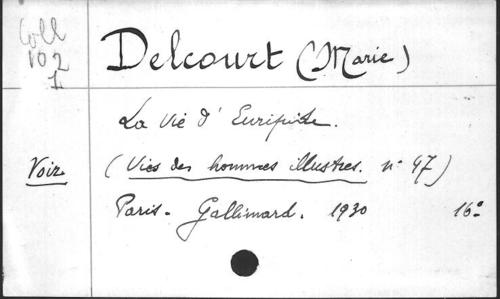 Coll
102
1
Delcourt (Marie)
La Vie d'Euripide.
Voir (Vies des hommes illustres. n° 47)
Paris. Gallimard. 1930 16°